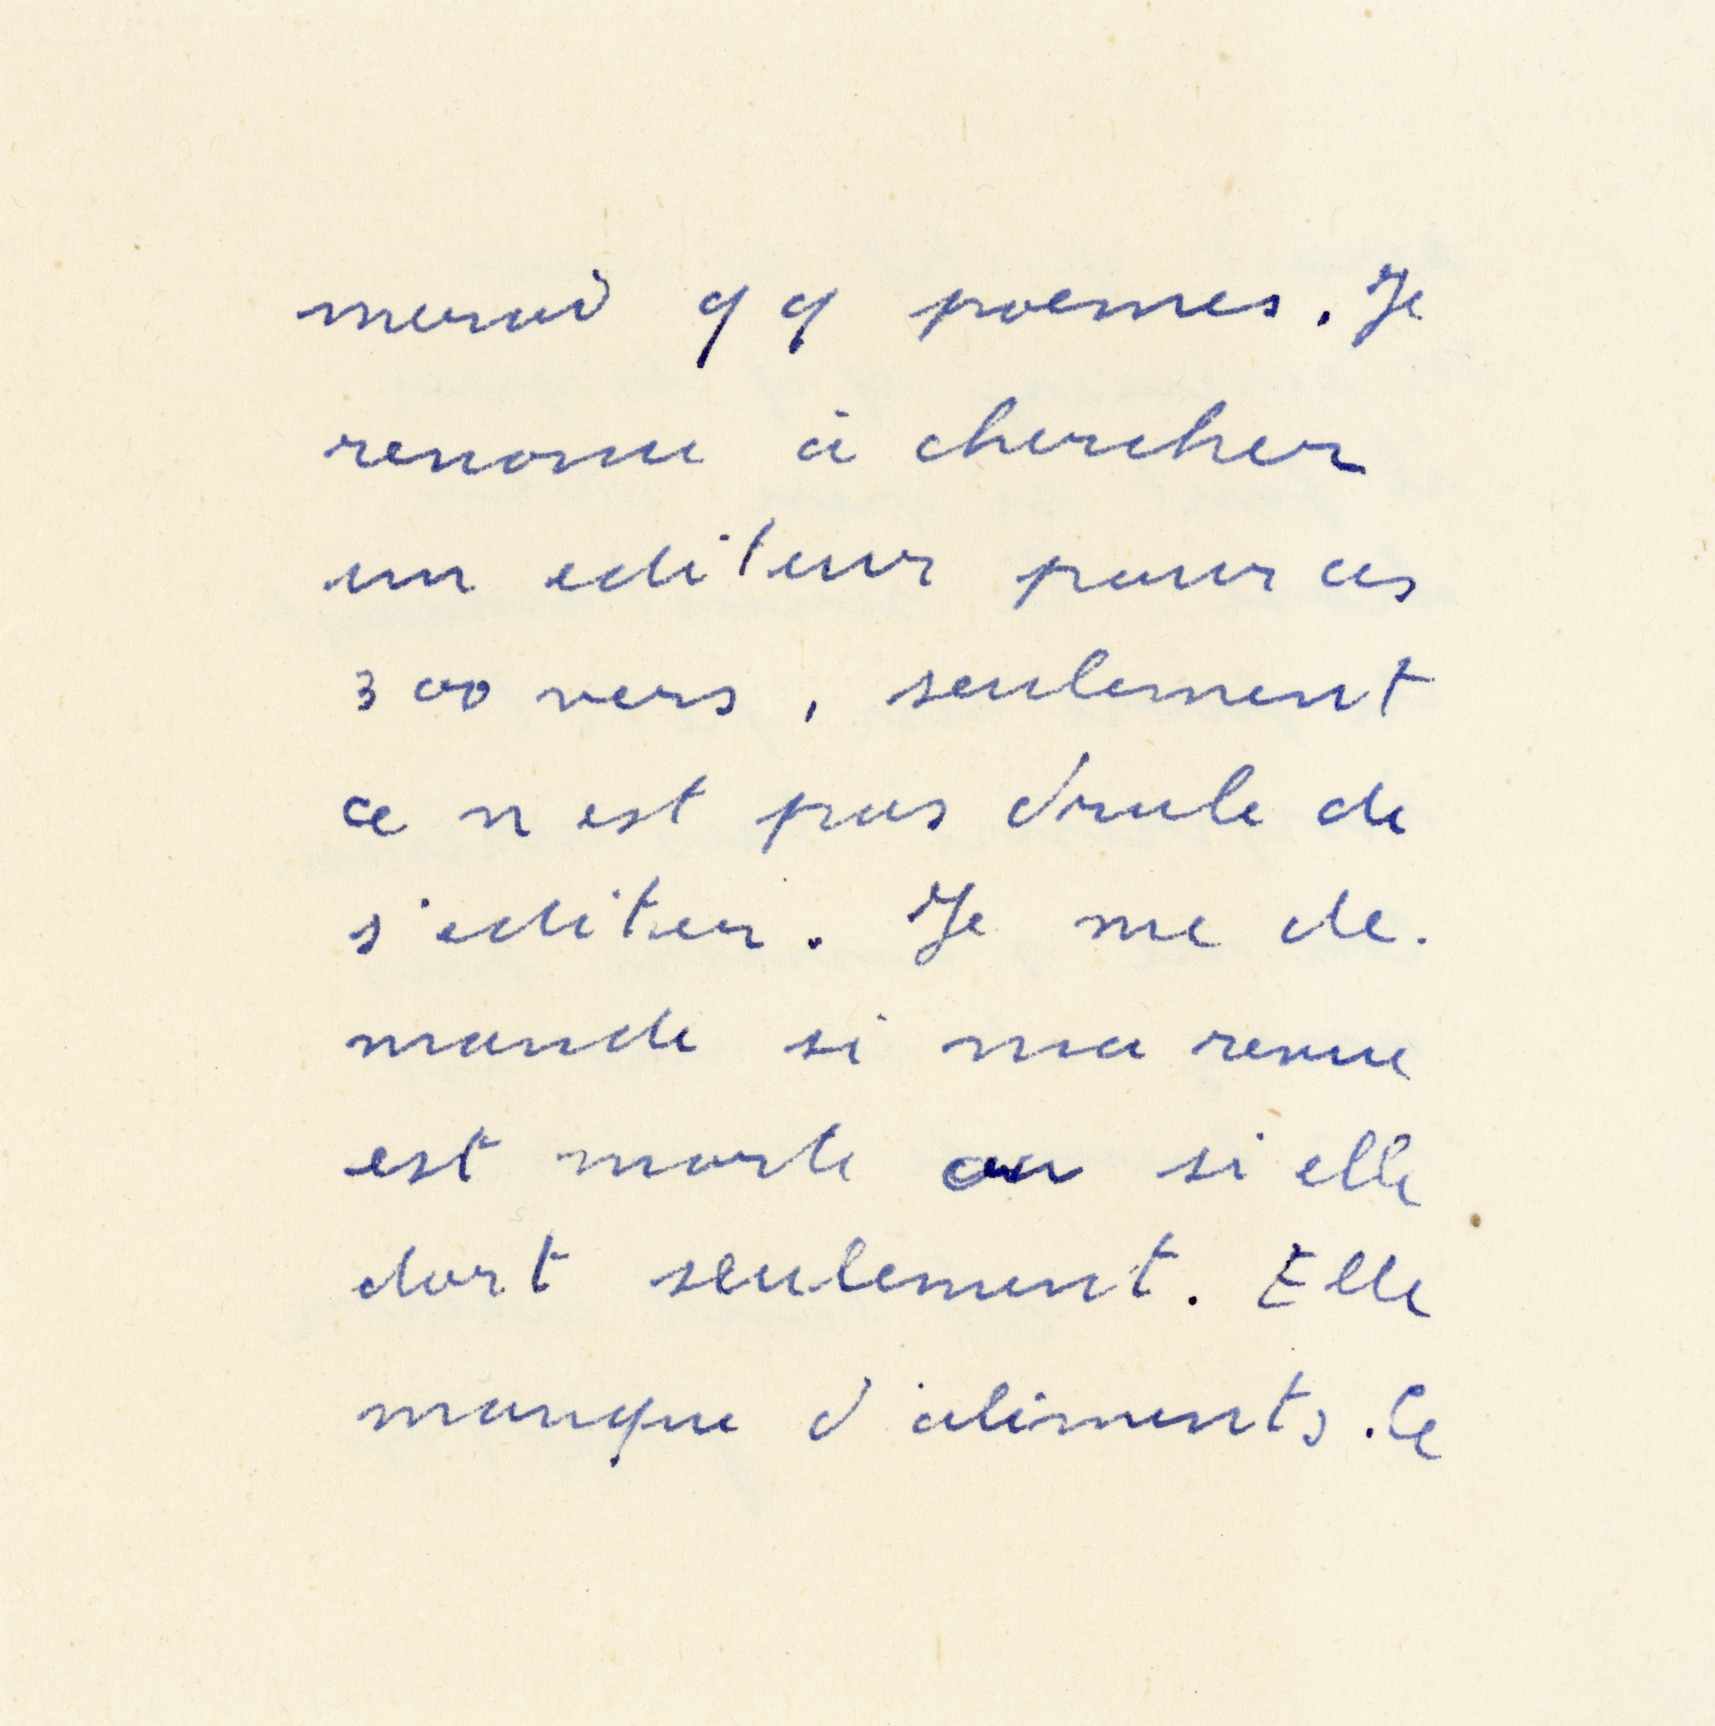 merai qq poemes. Je
renonce à chercher
un editeur pour ces
300 vers, seulement
ce n est pas drole de
s'editer. Je me de-
mande si ma revue
est morte ou si elle
dort seulement. Elle
manque d'aliments. Ce